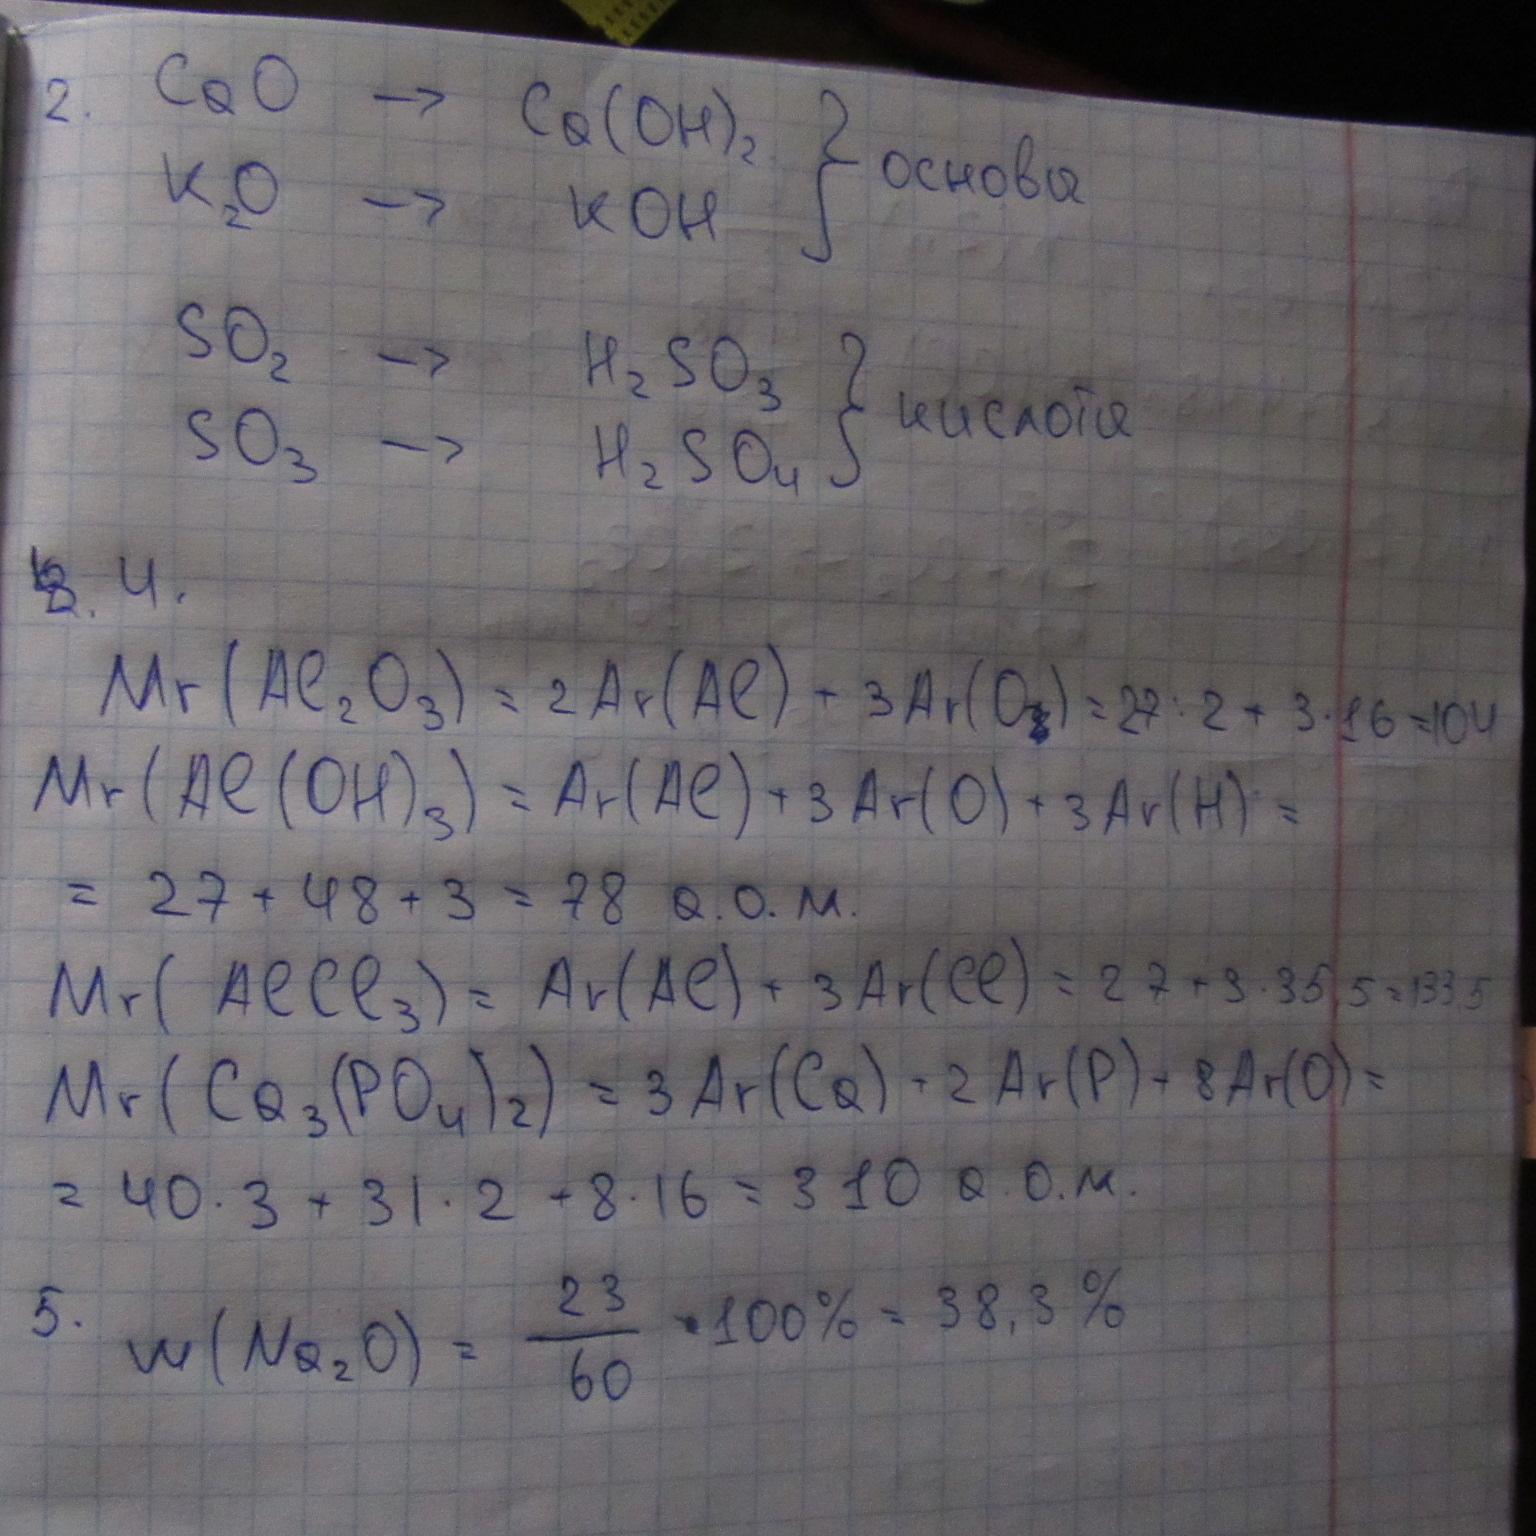 2. CaO → Ca(OH)₂ } основы
K₂O → KOH
SO₂ → H₂SO₃ } кислота
SO₃ → H₂SO₄
4.
Mr(Al₂O₃) = 2Ar(Al) + 3Ar(O) = 27·2 + 3·16 = 104
Mr(Al(OH)₃) = Ar(Al) + 3Ar(O) + 3Ar(H) =
= 27 + 48 + 3 = 78 а.о.м.
Mr(AlCl₃) = Ar(Al) + 3Ar(Cl) = 27 + 3·35,5 = 133,5
Mr(Ca₃(PO₄)₂) = 3Ar(Ca) + 2Ar(P) + 8Ar(O) =
= 40·3 + 31·2 + 8·16 = 310 а.о.м.
5. w(Na₂O) = 23/60 · 100% = 38,3%